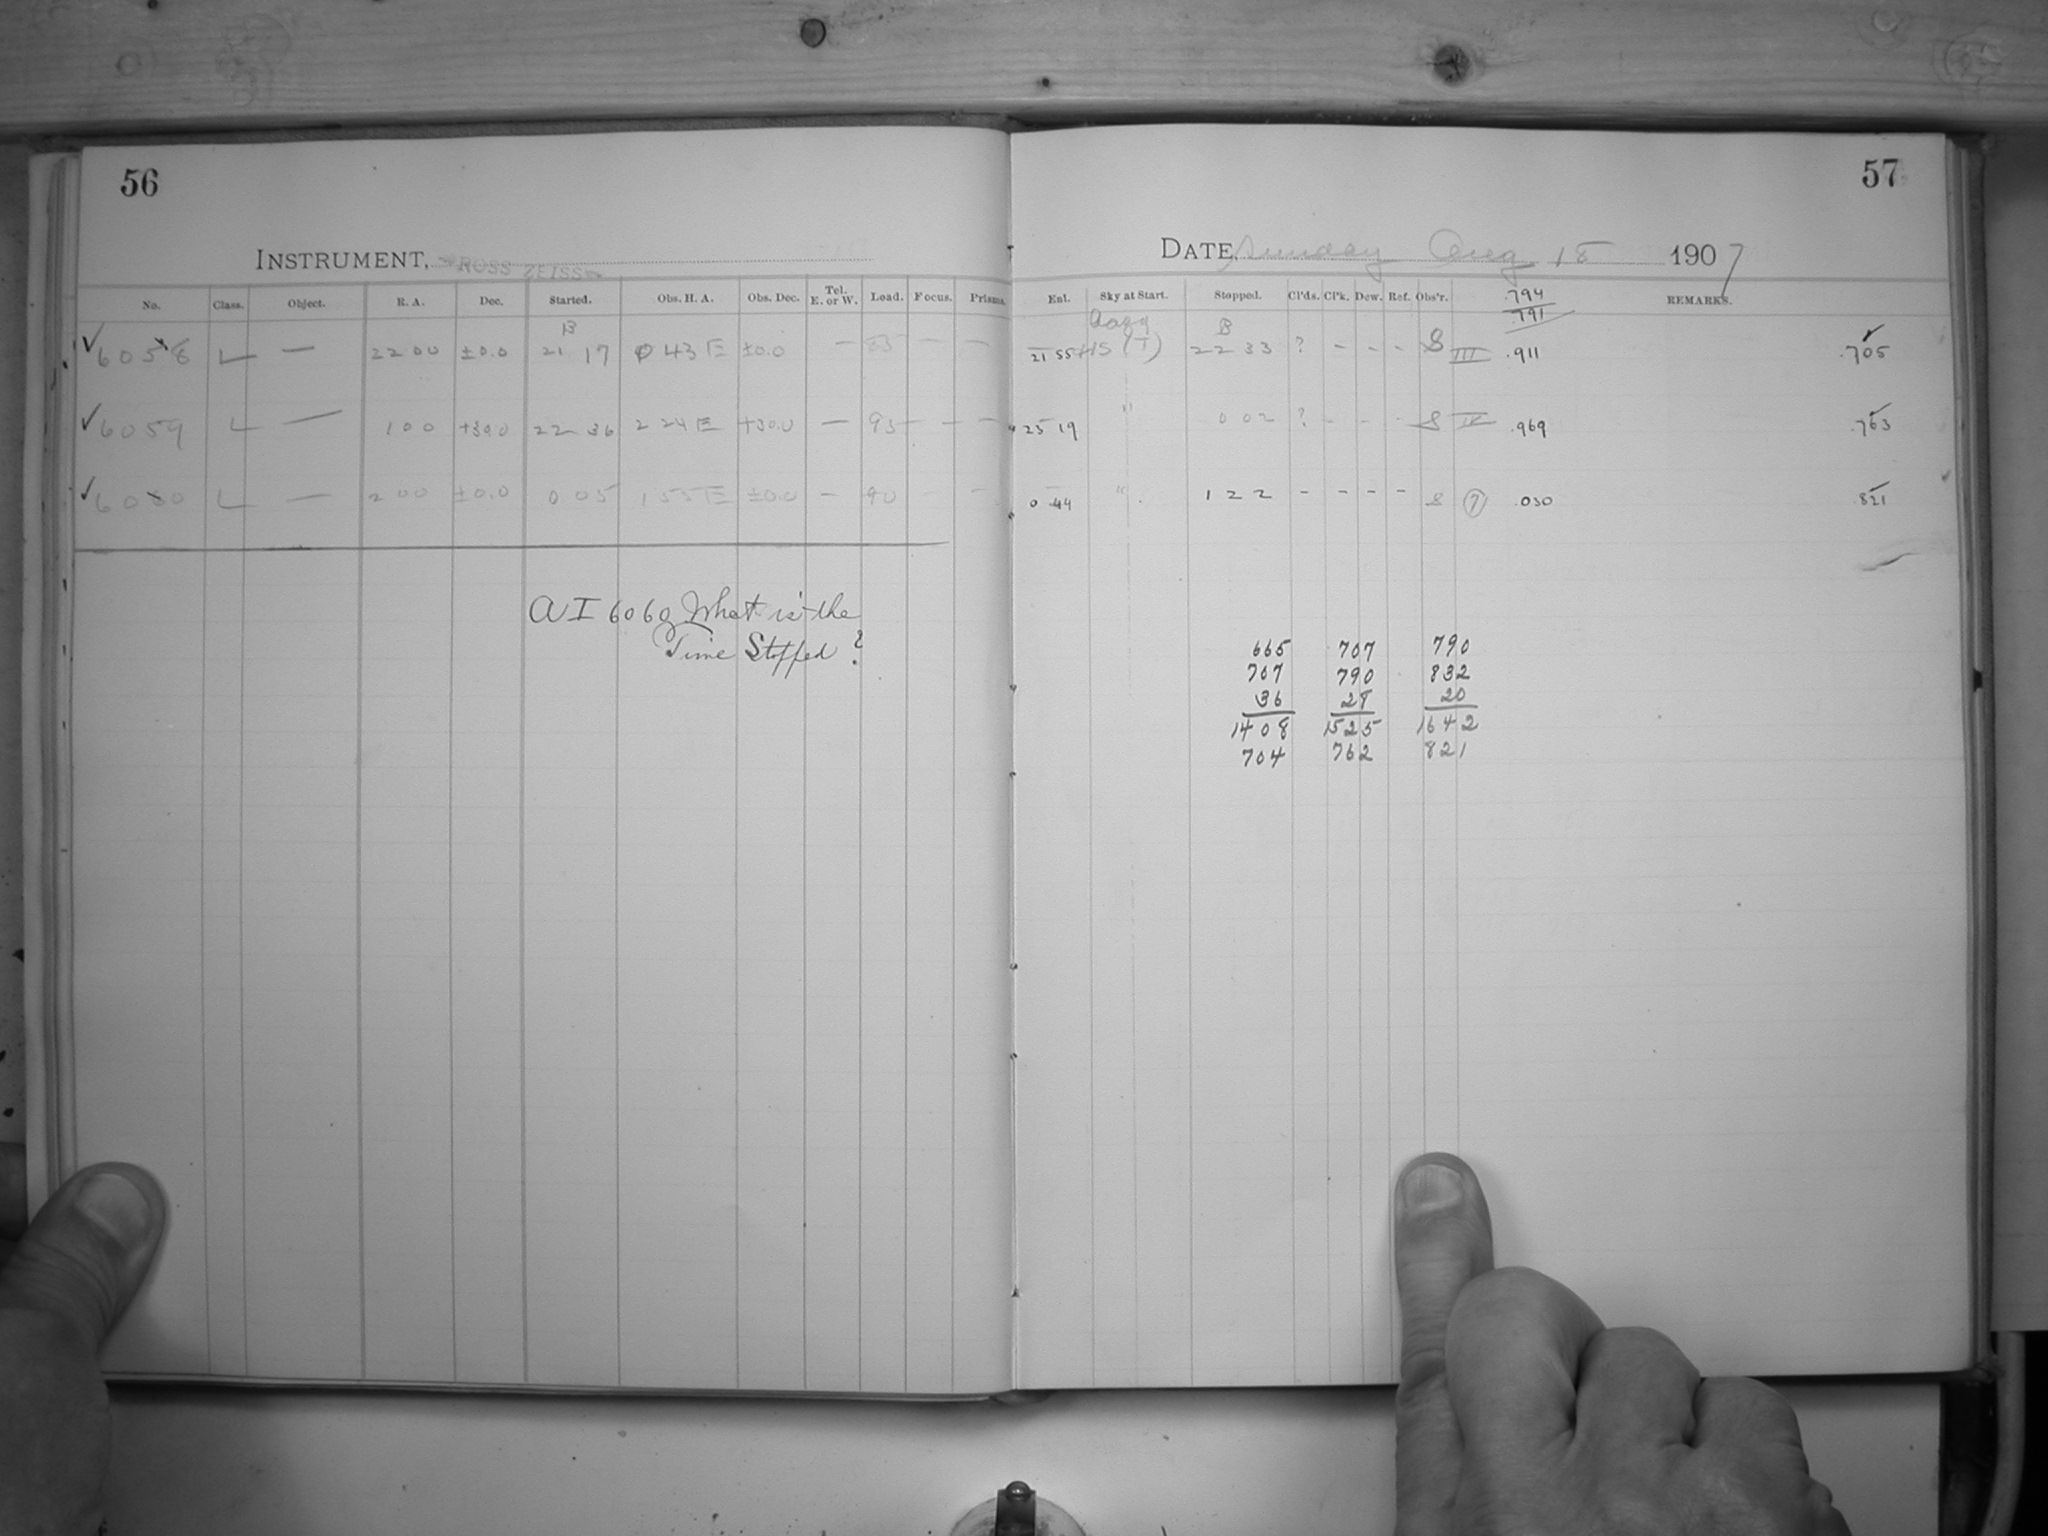 56
INSTRUMENT, ROSS ZEISS
No. Class. Object. R. A. Dec. Started. Obs. H. A. Obs. Dec. Tel. E. or W. Load. Focus. Prisms.
B
✓ 6058 L — 22 00 ±0.0 21 17 0 43 E ±0.0 — 83 — —
✓ 6059 L — 1 00 +30.0 22 36 2 24 E +30.0 — 93 — —
✓ 6060 L — 2 00 ±0.0 0 05 1 55 E ±0.0 — 90 — —
AI 6060 What is the
Time Stopped?
57
DATE, Sunday Aug 18 1907
Ent. Sky at Start. Stopped. Cl'ds. Cl'k. Dew. Ref. Obs'r. .794 REMARKS.
.791
B
21 55 (T) 22 33 ? - - - S III .911 .705
23 19 " 0 02 ? - - - S IV .969 .763
0 44 " 1 22 - - - - S .030 .821
665 707 790
707 790 832
36 28 20
1408 1525 1642
704 762 821